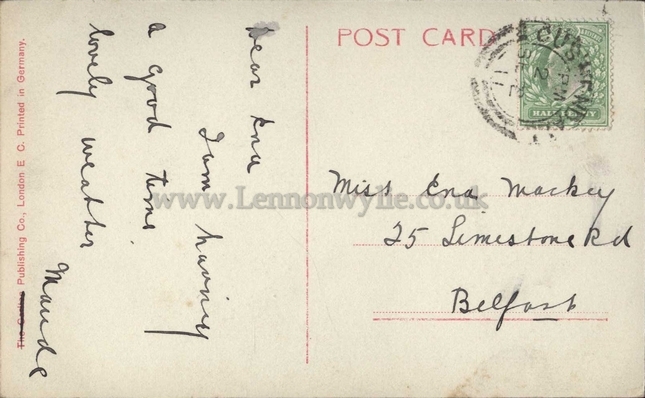 POST CARD
Dear Ena
I am having
a good time
lovely weather
Maude
Miss Ena Mackey
25 Limestone Rd
Belfast
HALFPENNY
www.Lennonwylie.co.uk
Publishing Co., London E. C. Printed in Germany.